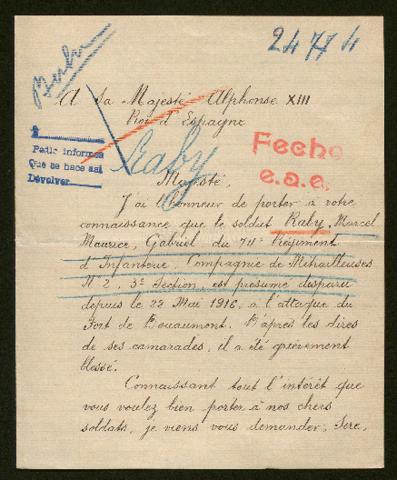 24774
A Sa Majesté Alphonse XIII
Roi d'Espagne
Raby
Pedir informes
Que se hace asi
Devolver
Fecho
e.a.e.
Majesté,
J'ai l'honneur de porter à votre
connaissance que le soldat Raby, Marcel
Maurice, Gabriel du 74e Régiment
d'Infanterie Compagnie de Mitrailleuses
N° 2, 3e Section, est présumé disparu
depuis le 22 Mai 1916, à l'attaque du
Fort de Douaumont. D'après les dires
de ses camarades, il a été grièvement
blessé.
Connaissant tout l'intérêt que
vous voulez bien porter à nos chers
soldats, je viens vous demander, Sire,